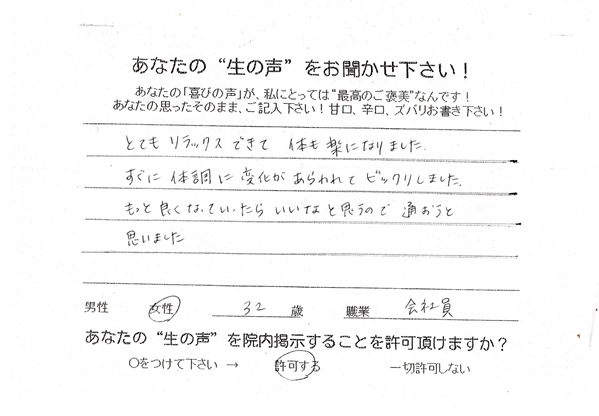 あなたの“生の声”をお聞かせ下さい！
あなたの「喜びの声」が、私にとっては“最高のご褒美”なんです！
あなたの思ったそのまま、ご記入下さい！甘口、辛口、ズバリお書き下さい！
とてもリラックスできて 体も楽になりました。
すぐに体調に変化があらわれてビックリしました。
もっと良くなっていったらいいなと思うので通おうと
思いました
男性 女性 32 歳 職業 会社員
あなたの“生の声”を院内掲示することを許可頂けますか？
〇をつけて下さい → 許可する 一切許可しない